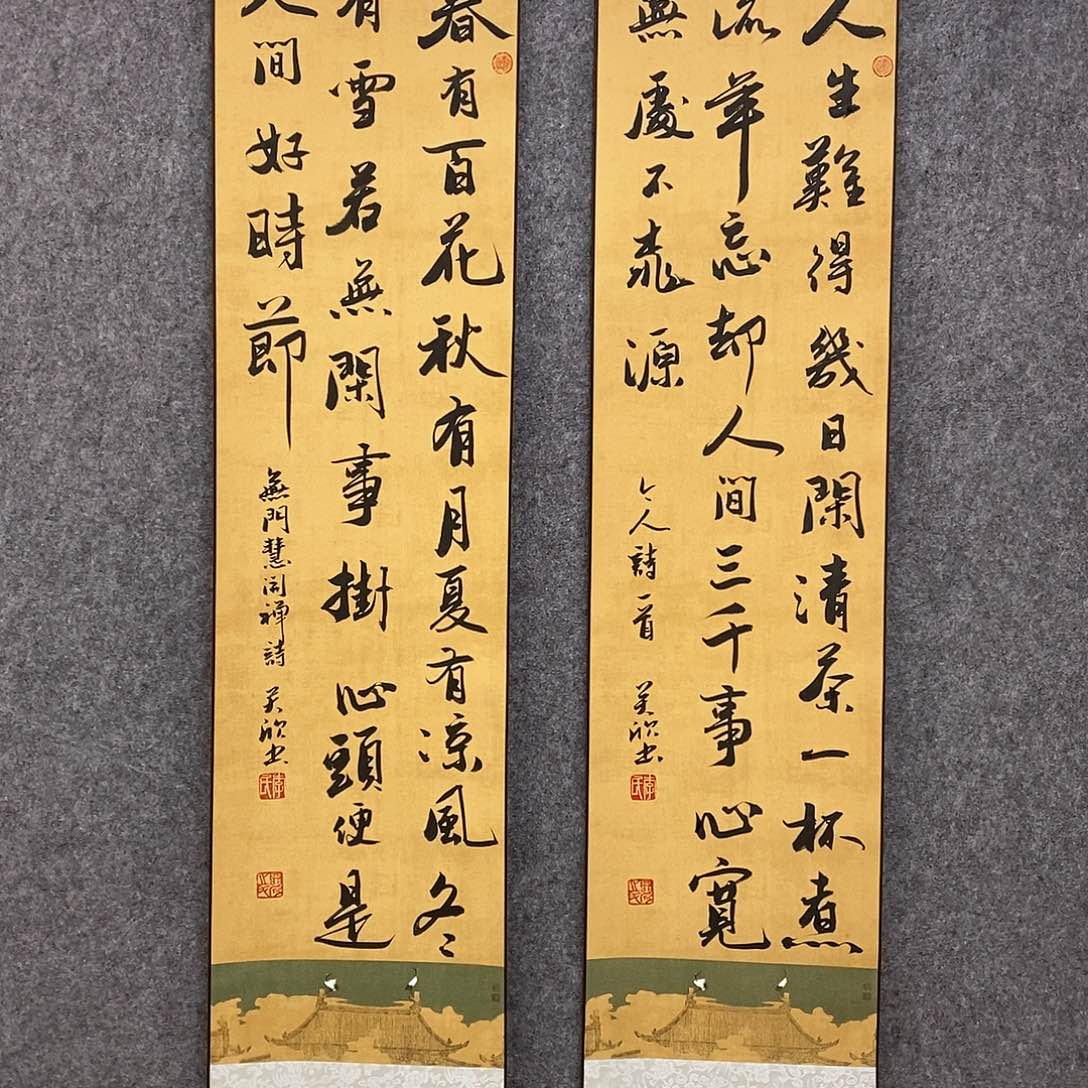 人生難得幾日閑清茶一杯煮
流年忘却人間三千事心寬
無處不桃源
今人詩一首 欣书
李氏
春有百花秋有月夏有涼風冬
有雪若無閑事掛心頭便是
人間好時節
無門慧開禪詩 欣书
李氏